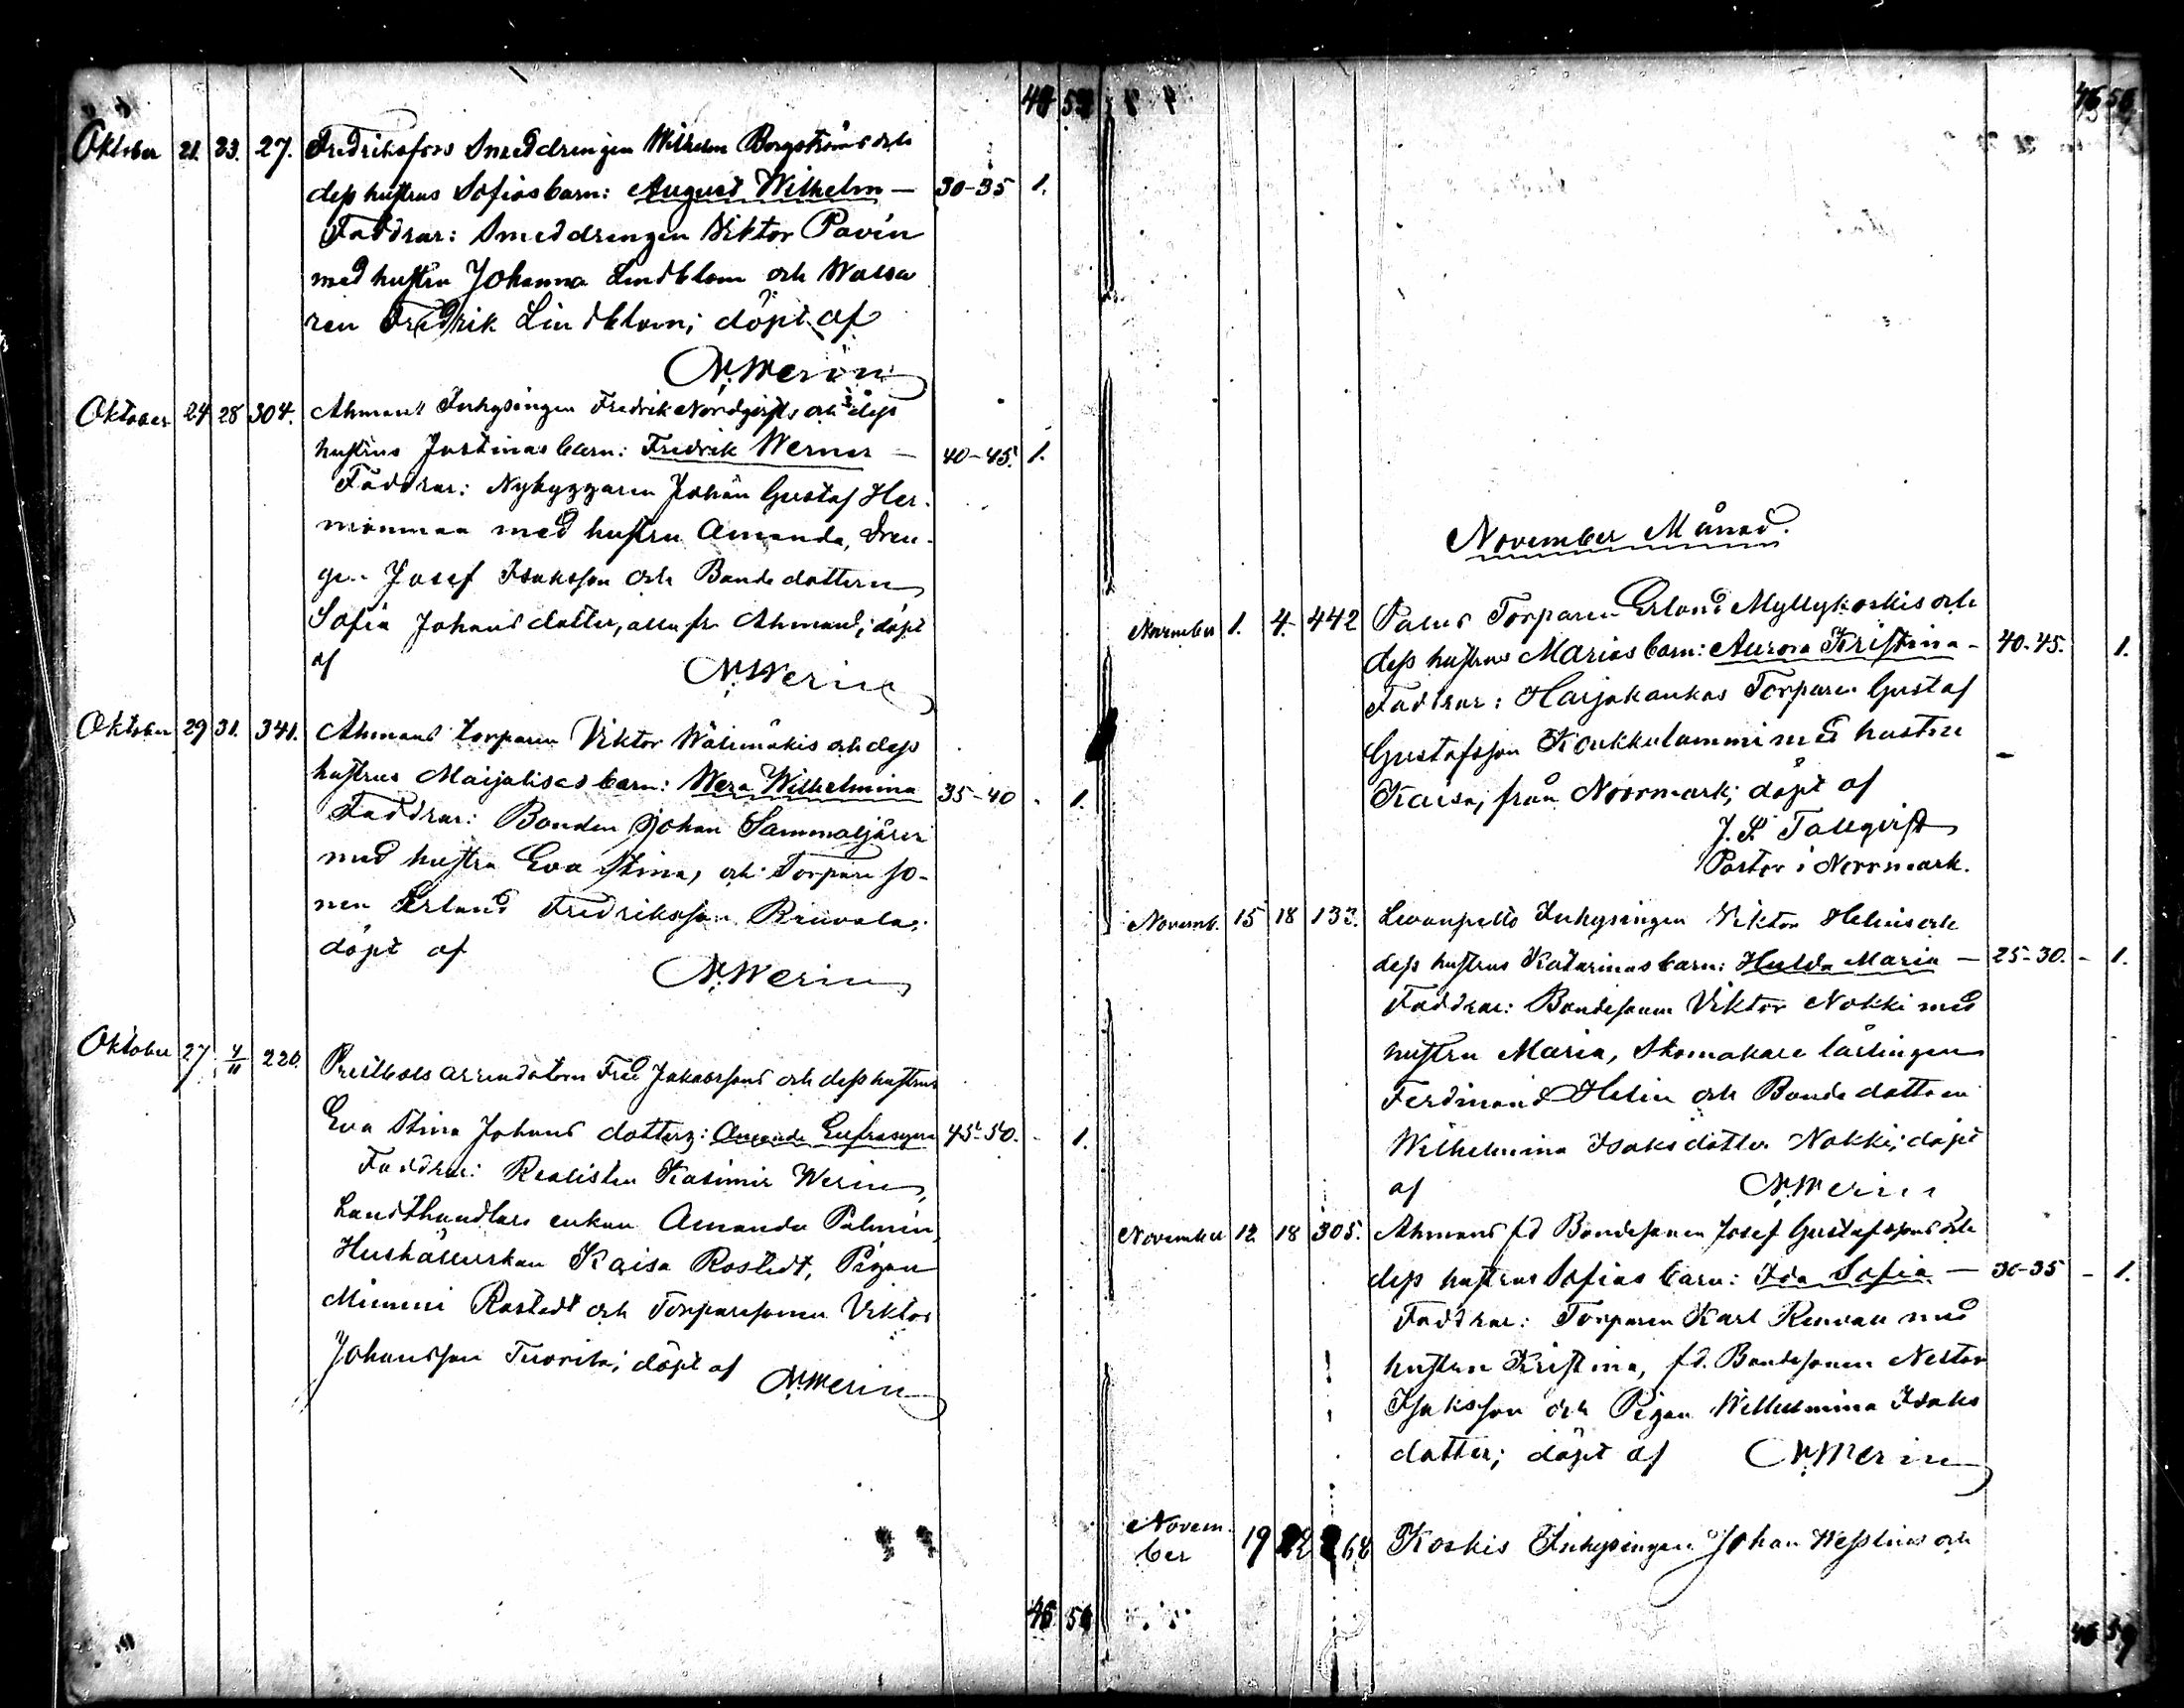 Oktober 21. 23. 27. Fredriksfors Smeddrengen Wilhelm Borgströms och
dess hustrus Sofias barn: August Wilhelm — 30-35 1.
Faddrar: Smeddrengen Viktor Pavén
med hustru Johanna Lindblom och Walsa
ren Fredrik Lindblom; döpt af
N. Merin
Oktober 24 28 304. Ahmaus Inhysingen Fredrik Nordqvists och dess
hustrus Justinas barn: Fredrik Werner — 40-45. 1.
Faddrar: Nybyggaren Johan Gustaf Her-
monmaa med hustru Amanda, Dren-
gen Josef Isaksson och Bonde dottern
Sofia Johans dotter, alla fr Ahmaus; döpt
af N. Merin
Oktober 29 31. 341. Ahmaus torparen Viktor Wälimäkis och dess
hustrus Maijalisas barn: Wera Wilhelmina 35-40 - 1.
Faddrar: Bonden Johan Sammaljärvi
med hustru Eva Stina, och Torpare so-
nen Erland Fredriksson
döpt af
N. Merin
Oktober 27 4/11 220. arrendatorn Fred Jakobssons och dess hustrus
Eva Stina Johans dotters: Amanda Eufrosyne 45-50. - 1.
Faddrar: Realisten Kasimir Merin,
Landthandlare enkan Amanda Palmén,
Hushållerskan Kaisa Rostedt, Pigan
Mimmi Rostedt och Torparesonen Viktor
Johansson Tuorila; döpt af N. Merin
46 56
46 59
November Månad.
November 1. 4. 442 Torparen Erland Myllykoskis och
dess hustrus Marias barn: Aurora Kristina - 40-45. 1.
Faddrar: Harjakankas Torparen Gustaf
Gustafsson Koukkulammi med hustru
Kaisa, från Norrmark; döpt af
J. L. Tallqvist
Pastor i Norrmark.
Novemb. 15 18 132. Levanpelto Inhysingen Viktor Helins och
dess hustrus Katarinas barn: Hulda Maria — 25-30. - 1.
Faddrar: Bondesonen Viktor Nokki med
hustru Maria, Skomakare lärlingen
Ferdinand Helin och Bonde dottern
Wilhelmina Isaks dotter Nokki; döpt
af N. Merin
November 12 18 305. Ahmaus fd Bondesonen Josef Gustafssons och
dess hustrus Sofias barn: Ida Sofia — 30-35 - 1.
Faddrar: Torparen Karl med
hustru Kristina, fd. Bondesonen Nestor
Isaksson och Pigan Wilhelmina Isaks
dotter; döpt af N. Merin
Novem-
ber 19 22 68 Koskis Inhysingen Johan Wesslins och
46 59